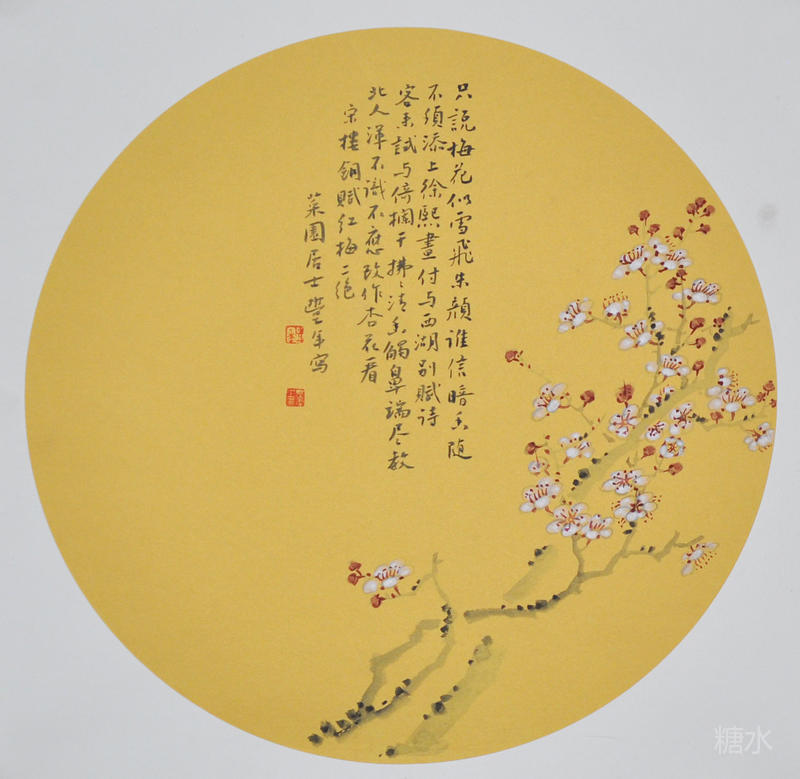 只説梅花似雪飛朱顔誰信暗香随
不須添上徐熙畫付与西湖别賦诗
客来試与倚欄干拂々清香觸鼻端尽教
北人渾不識不應改作杏花看
宋樓鑰賦红梅二绝
菜園居士豐年寫
糖水